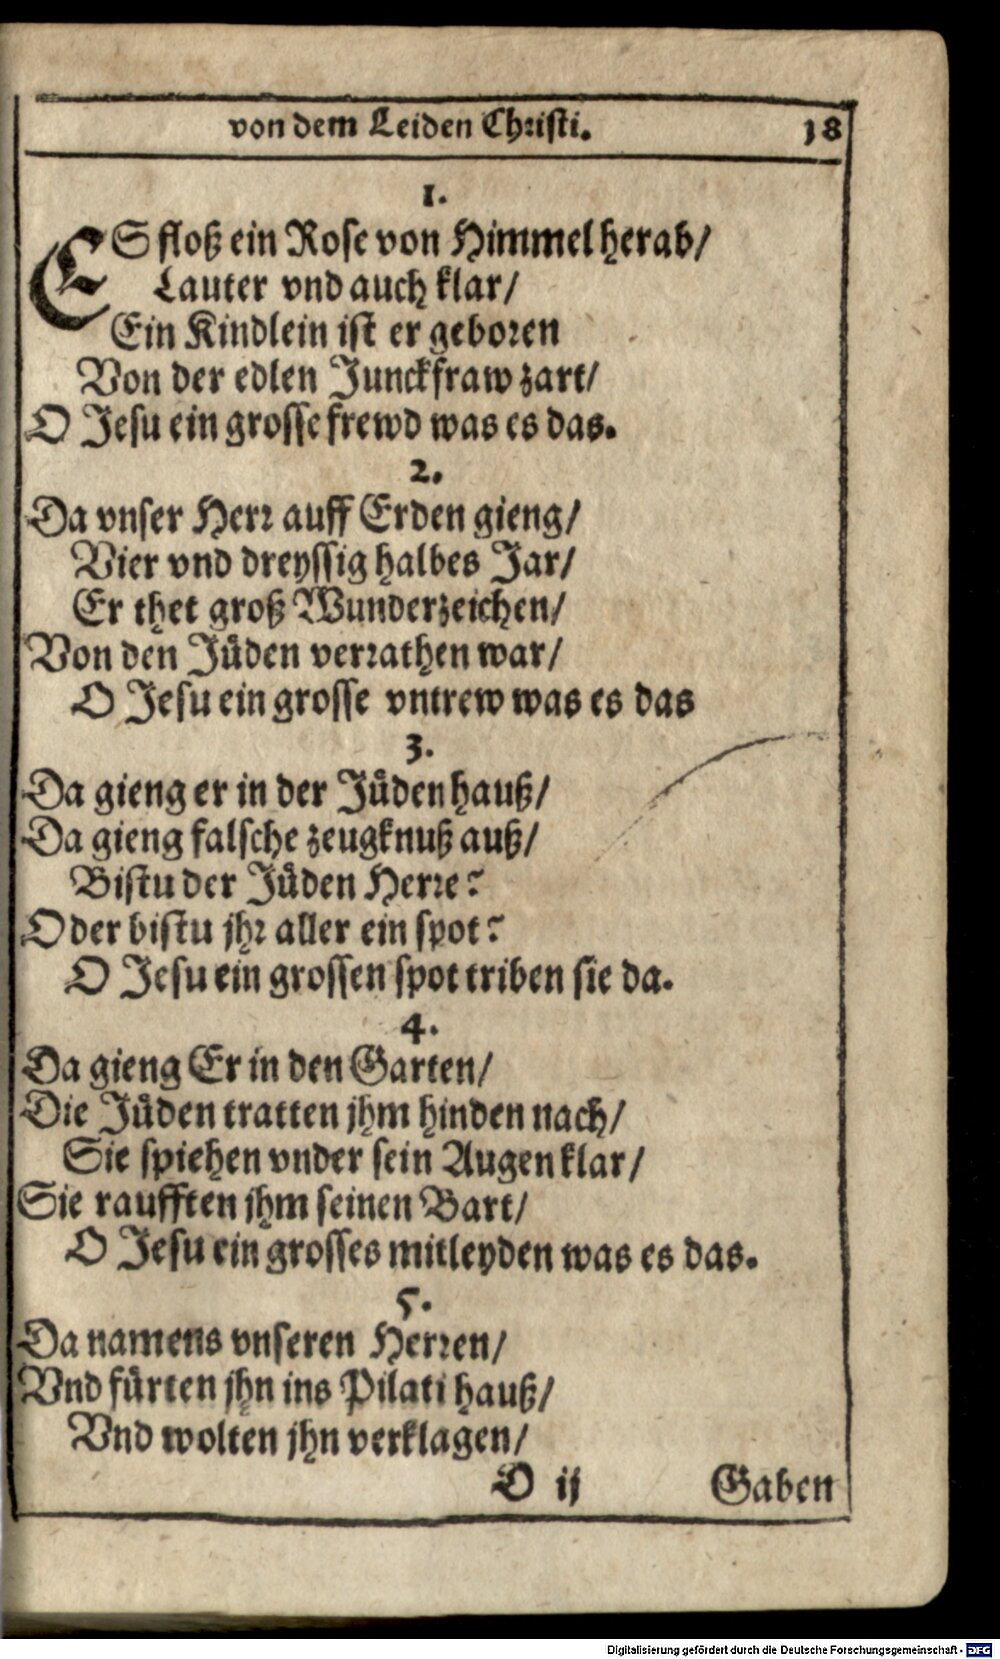 von dem Leiden Christi. 18
1.
ES floß ein Rose von Himmel herab/
Lauter vnd auch klar/
Ein Kindlein ist er geboren
Von der edlen Junckfraw zart/
O Jesu ein grosse frewd was es das.
2.
Da vnser Herr auff Erden gieng/
Vier vnd dreyssig halbes Jar/
Er thet groß Wunderzeichen/
Von den Jüden verrathen war/
O Jesu ein grosse vntrew was es das
3.
Da gieng er in der Jüden hauß/
Da gieng falsche zeugknuß auß/
Bistu der Jüden Herre?
Oder bistu jhr aller ein spot?
O Jesu ein grossen spot triben sie da.
4.
Da gieng Er in den Garten/
Die Jüden tratten jhm hinden nach/
Sie spiehen vnder sein Augen klar/
Sie raufften jhm seinen Bart/
O Jesu ein grosses mitleyden was es das.
5.
Da namens vnseren Herren/
Vnd fürten jhn ins Pilati hauß/
Vnd wolten jhn verklagen/
O ij Gaben
Digitalisierung gefördert durch die Deutsche Forschungsgemeinschaft - DFG